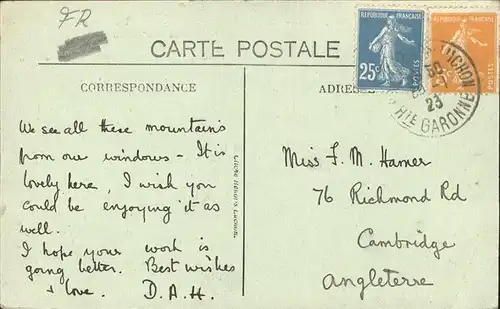 FR
CARTE POSTALE
CORRESPONDANCE
ADRES
REPUBLIQUE FRANÇAISE
25c
POSTES
REPUBLIQUE FRANÇAISE
POSTES
LUCHON
23
HTE GARONNE
We see all these mountains
from our windows - It is
lovely here, I wish you
could be enjoying it as
well.
I hope your work is
going better. Best wishes
& love. D.A.H.
Miss F. M. Hamer
76 Richmond Rd
Cambridge
Angleterre